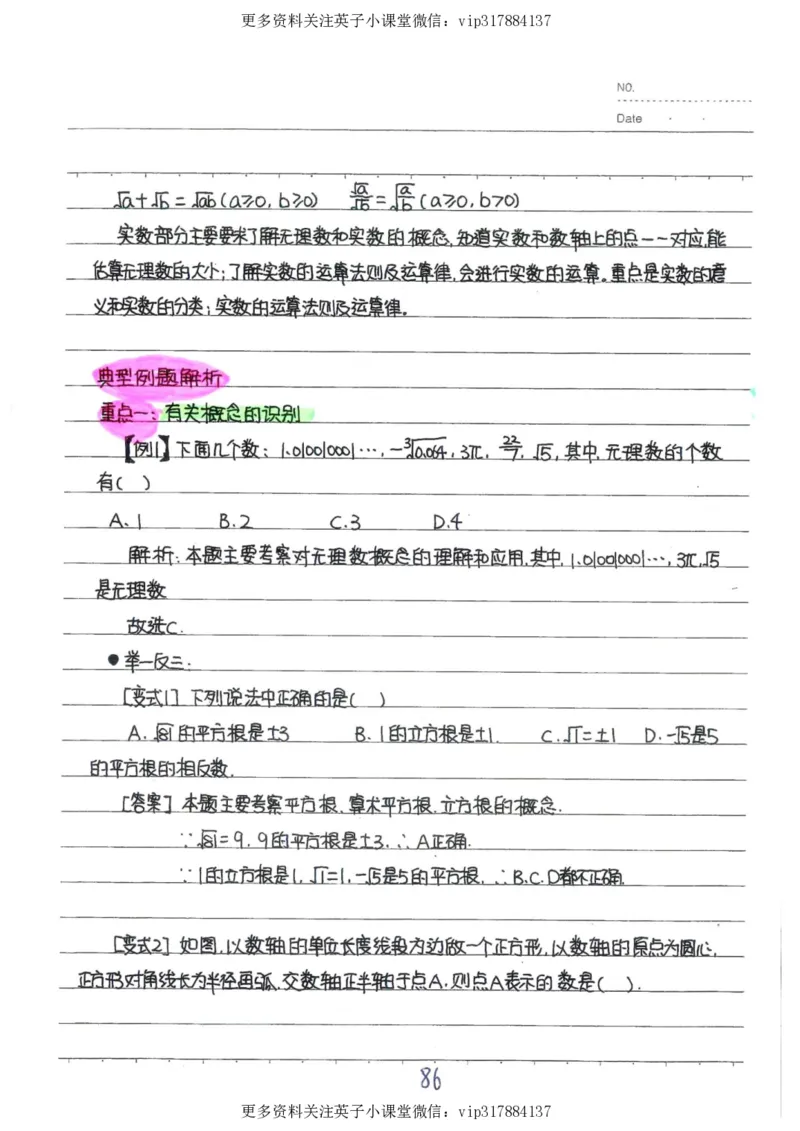 更多资料关注英子小课堂微信：vip317884137
NO.
Date
√a+√b=√ab(a≥0,b≥0) √a/√b=√(a/b)(a≥0,b>0)
实数部分主要要求了解无理数和实数的概念,知道实数和数轴上的点一一对应,能
估算无理数的大小;了解实数的运算法则及运算律,会进行实数的运算。重点是实数的意
义和实数的分类;实数的运算法则及运算律。
典型例题解析
重点一:有关概念的识别
【例1】下面几个数:1.010010001…,-³√0.064,3π,22/7,√5,其中,无理数的个数
有( )
A、1 B.2 C.3 D.4
解析:本题主要考察对无理数概念的理解和应用,其中,1.010010001…,3π,√5
是无理数
故选C.
●举一反三:
[变式1]下列说法中正确的是( )
A.√81的平方根是±3 B.1的立方根是±1. C.√1=±1 D.-√5是5
的平方根的相反数.
[答案]本题主要考察平方根、算术平方根、立方根的概念.
∵√81=9,9的平方根是±3,∴A正确.
∵1的立方根是1,√1=1,-√5是5的平方根,∴B、C、D都不正确.
[变式2]如图,以数轴的单位长度线段为边做一个正方形,以数轴的原点为圆心,
正方形对角线长为半径画弧,交数轴正半轴于点A,则点A表示的数是( ).
86
更多资料关注英子小课堂微信：vip317884137